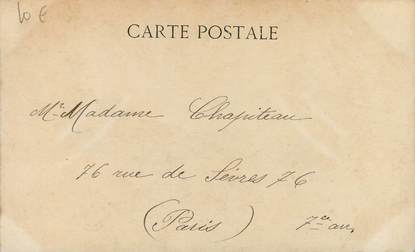 10 €
CARTE POSTALE
Mr Madame Chapiteau
76 rue de Sèvres 76
(Paris) 7e arr.